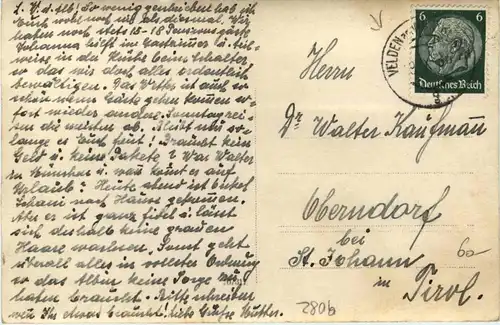 L. V. u. Alb! So wenig geschrieben hab ich
Euch wohl noch nie als diesmal. Wir
haben noch stets 15-18 Pens.
Johanna hilft im Gastzimmer u. teil-
weise in der Küche beim
so das wir doch alles ordentlich
bewältigen. Das Wetter ist auch so
schön wenn Gäste gehen kommen so-
fort wieder andere. Sonntag
die weiter ab. Bleibt nur so-
lange es Euch freut! Braucht Ihr kein
Geld u. keine Pakete? War Walter
in u. was kommt es auf
Urlaub? Heute abend ist Onkel
Schani noch Hause gekommen.
Aber es ist ganz fidel u. lässt
sich deshalb keine grauen
Haare wachsen. Sonst geht
überall alles in vollster Ordnung
so das Ihr keine Sorge zu
haben braucht. Bitte schreiben
wenn Ihr etwas braucht! Liebe Grüße Mutter.
VELDEN
6 6
Deutsches Reich
Herrn
Dr Walter Kaufmann
Oberndorf
bei
St. Johann
in Tirol.
60
2806